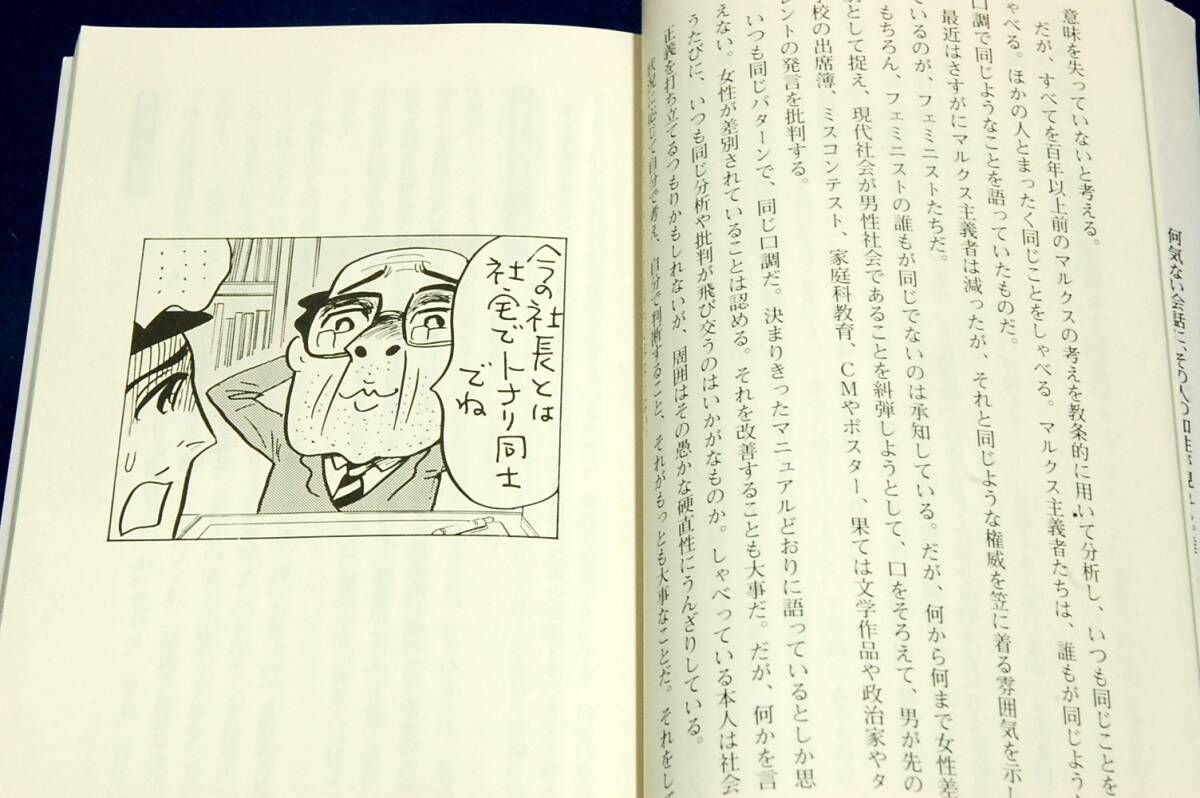 何気ない会話に、その人の
意味を失っていないと考える。
だが、すべてを百年以上前のマルクスの考えを教条的に用いて分析し、いつも同じことを
しゃべる。ほかの人とまったく同じことをしゃべる。マルクス主義者たちは、誰もが同じよう
口調で同じようなことを語っていたものだ。
最近はさすがにマルクス主義者は減ったが、それと同じような権威を笠に着る雰囲気を示し
ているのが、フェミニストたちだ。
もちろん、フェミニストの誰もが同じでないのは承知している。だが、何から何まで女性差
として捉え、現代社会が男性社会であることを糾弾しようとして、口をそろえて、男が先の
校の出席簿、ミスコンテスト、家庭科教育、CMやポスター、果ては文学作品や政治家やタ
レントの発言を批判する。
いつも同じパターンで、同じ口調だ。決まりきったマニュアルどおりに語っているとしか思
えない。女性が差別されていることは認める。それを改善することも大事だ。だが、何かを言
うたびに、いつも同じ分析や批判が飛び交うのはいかがなものか。しゃべっている本人は社会
正義を打ち立てるつもりかもしれないが、周囲はその愚かな硬直性にうんざりしている。
状況に応じて自分で考え、自分で判断すること、それがもっとも大事なことだ。それをして
今の社長とは
社宅でトナリ同士
でね
……
……